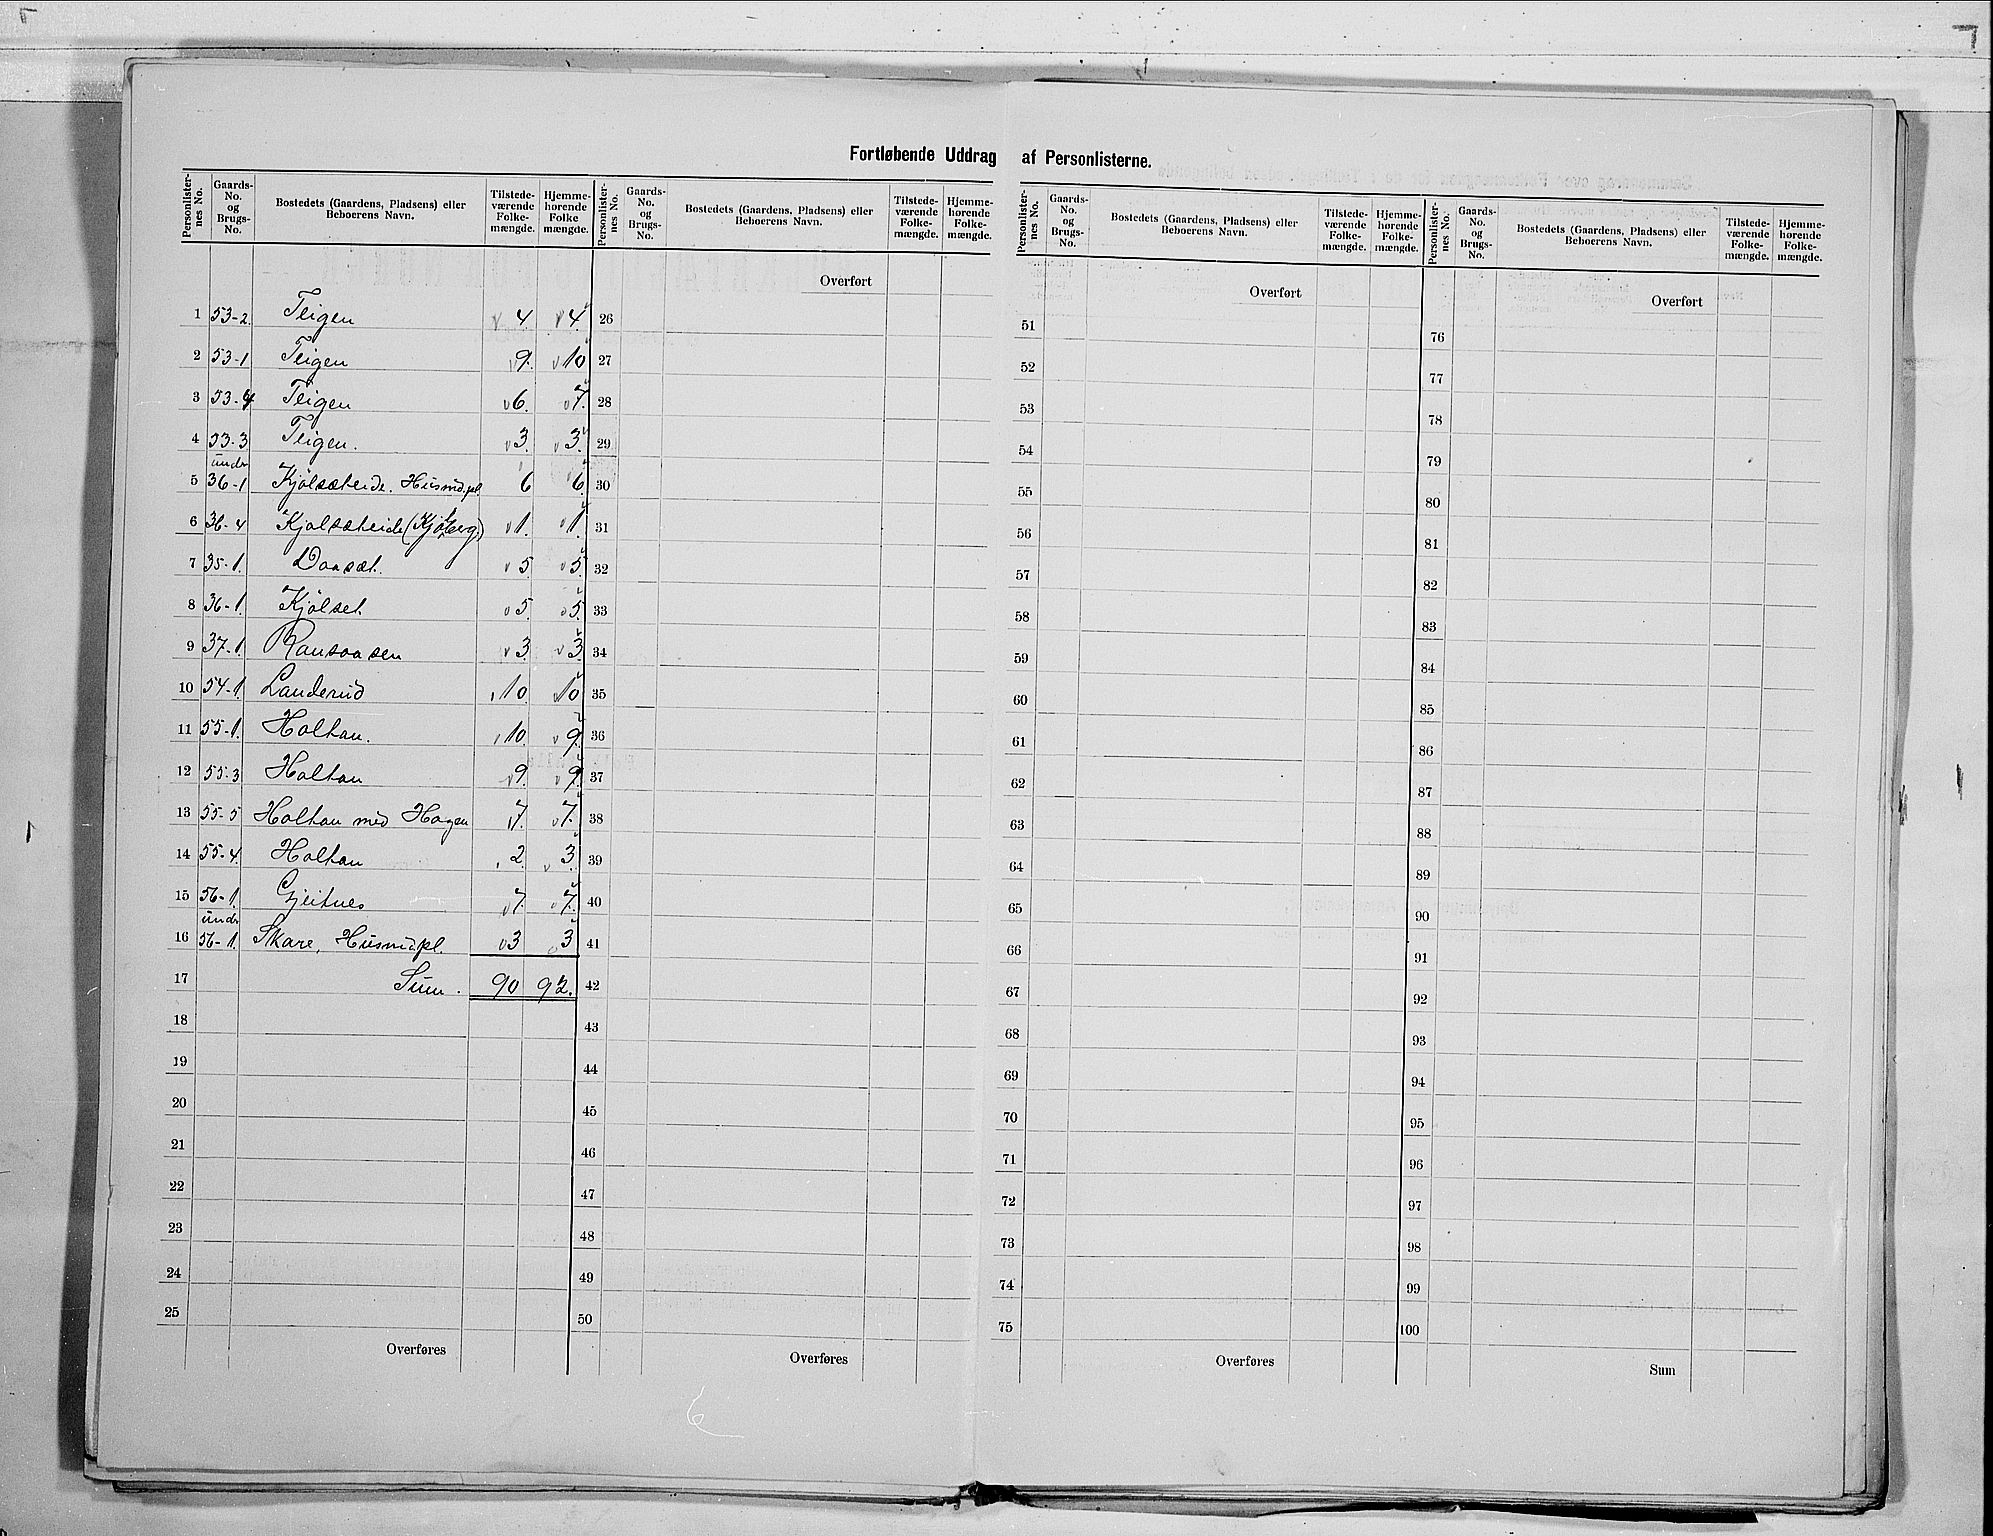 Fortløbende Uddrag af Personlisterne.
Personlister-nes No. | Gaards-No. og Brugs-No. | Bostedets (Gaardens, Pladsens) eller Beboerens Navn. | Tilstede-værende Folke-mængde. | Hjemme-hørende Folke-mængde.
Personlister-nes No. | Gaards-No. og Brugs-No. | Bostedets (Gaardens, Pladsens) eller Beboerens Navn. | Tilstede-værende Folke-mængde. | Hjemme-hørende Folke-mængde.
Personlister-nes No. | Gaards-No. og Brugs-No. | Bostedets (Gaardens, Pladsens) eller Beboerens Navn. | Tilstede-værende Folke-mængde. | Hjemme-hørende Folke-mængde.
Personlister-nes No. | Gaards-No. og Brugs-No. | Bostedets (Gaardens, Pladsens) eller Beboerens Navn. | Tilstede-værende Folke-mængde. | Hjemme-hørende Folke-mængde.
1 53-2. Teigen 4 4.
2 53-1 Teigen 9. 10
3 53-4 Teigen 6. 7.
4 53-3 Teigen. 3. 3.
5 under 36-1 Kjölsæteide. Husmd.pl. 6 6.
6 36-4 Kjølsæteide (Kjølberg) 1. 1.
7 35-1. Daasæt. 5. 5.
8 36-1. Kjölset 5. 5.
9 37-1. Ransaasen 3. 3.
10 54-1. Landerud 10 10
11 55-1. Holtan. 10. 9.
12 55-3 Holtan 9. 9.
13 55-5 Holtan med Hagen 7. 7.
14 55-4. Holtan 2. 3.
15 56-1. Gjeitnes 7. 7.
16 under 56-1. Skare, Husmd.pl. 3 3
17 Sum. 90 92.
18
19
20
21
22
23
24
25
Overføres
Overført
26
27
28
29
30
31
32
33
34
35
36
37
38
39
40
41
42
43
44
45
46
47
48
49
50
Overføres
Overført
51
52
53
54
55
56
57
58
59
60
61
62
63
64
65
66
67
68
69
70
71
72
73
74
75
Overføres
Overført
76
77
78
79
80
81
82
83
84
85
86
87
88
89
90
91
92
93
94
95
96
97
98
99
100
Sum
6